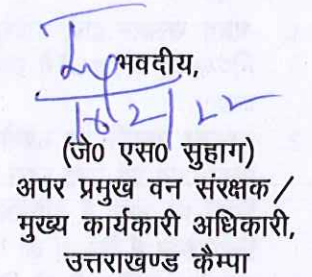 भवदीय,
16/2/22
(जे0 एस0 सुहाग)
अपर प्रमुख वन संरक्षक/
मुख्य कार्यकारी अधिकारी,
उत्तराखण्ड कैम्पा